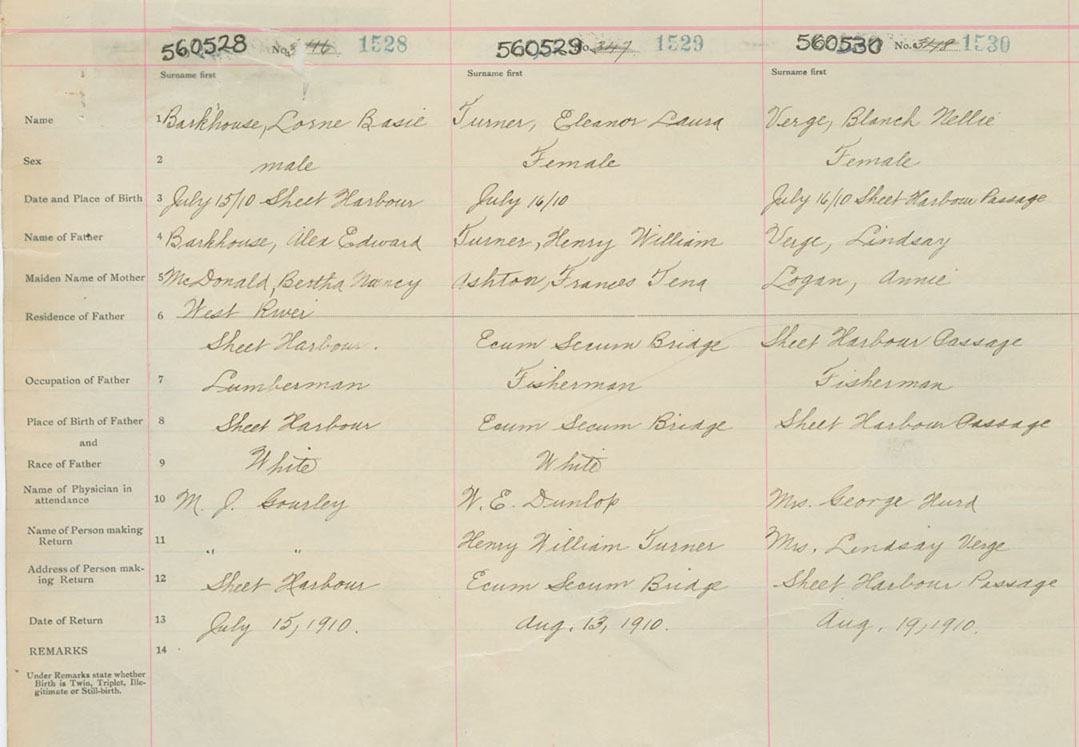 560528 No. 346 1528 560529 No. 347 1529 560530 No. 348 1530
Surname first Surname first Surname first
Name 1 Barkhouse, Lorne Basil Turner, Eleanor Laura Verge, Blanch Nellie
Sex 2 male Female Female
Date and Place of Birth 3 July 15/10 Sheet Harbour July 16/10 July 16/10 Sheet Harbour Passage
Name of Father 4 Barkhouse, Alex Edward Turner, Henry William Verge, Lindsay
Maiden Name of Mother 5 McDonald, Bertha Nancy Ashton, Frances Tena Logan, Annie
Residence of Father 6 West River
Sheet Harbour. Ecum Secum Bridge Sheet Harbour Passage
Occupation of Father 7 Lumberman Fisherman Fisherman
Place of Birth of Father 8 Sheet Harbour Ecum Secum Bridge Sheet Harbour Passage
and
Race of Father 9 White White
Name of Physician in
attendance 10 M. J. Gourley W. E. Dunlop Mrs. George Hurd
Name of Person making
Return 11 " " Henry William Turner Mrs. Lindsay Verge
Address of Person mak-
ing Return 12 Sheet Harbour Ecum Secum Bridge Sheet Harbour Passage
Date of Return 13 July 15, 1910. Aug. 13, 1910. Aug. 19, 1910.
REMARKS 14
Under Remarks state whether
Birth is Twin, Triplet, Ille-
gitimate or Still-birth.